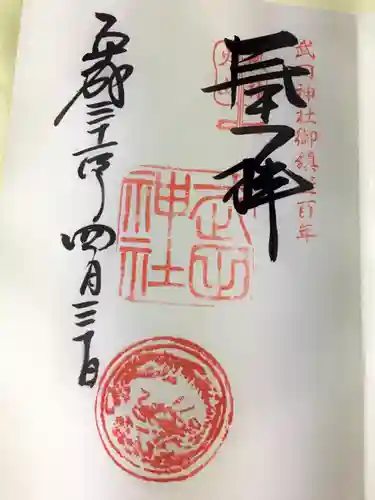 武田神社御鎮座百年
奉拝
武田神社
平成三十一年四月三日